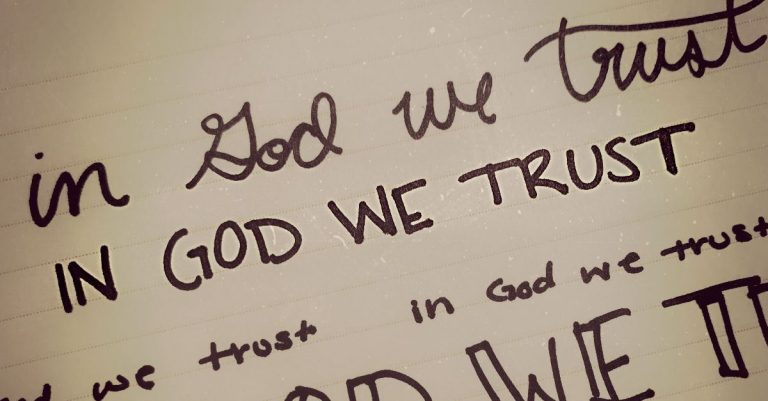 in God we trust
IN GOD WE TRUST
in God we trust
we trust
WE